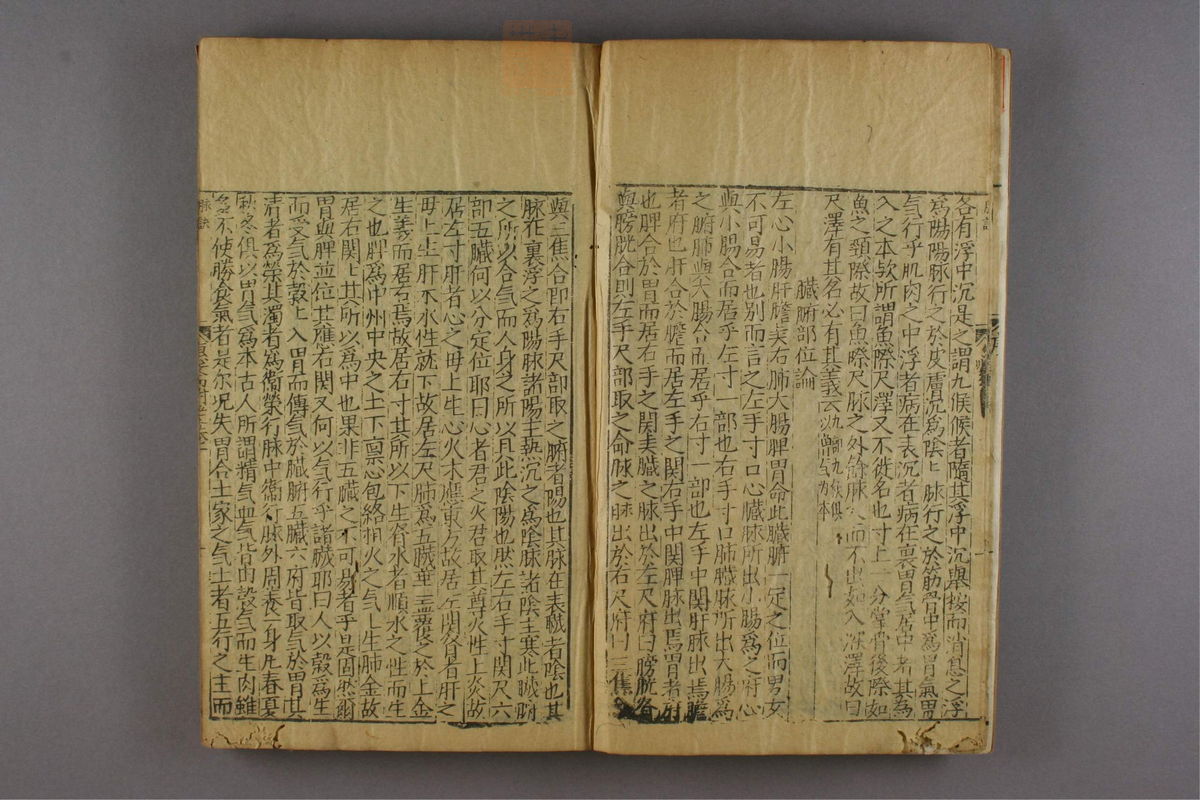 各有浮中沉是之謂九候候者隨其浮中沉舉按而消息之浮
為陽陽脉行之於皮膚沉為陰陰脉行之於筋骨中為胃氣胃
气行乎肌肉之中浮者病在表沉者病在裏胃气居中者其為
入之本欤所謂魚際尺澤又不徙名也寸上一分掌骨後際如
魚之頸際故曰魚際尺脉之外餘脉入而不出如入深澤故曰
尺澤有其名必有其義云九部九候俱以胃气为本
臓腑部位論
左心小腸肝膽矣右肺大腸脾胃命此臓腑一定之位而男女
不可易者也別而言之左手寸口心臓脉所出小腸為之府心
與小腸合而居乎左寸一部也右手寸口肺臓脉所出大腸為
之腑肺與大腸合而居乎右寸一部也左手中関肝脉出焉膽
者府也肝合於膽而居左手之関右手中関脾脉出焉胃者府
也脾合於胃而居右手之関矣臓之脉出於左尺府曰膀胱各
與膀胱合則左手尺部取之命脉之脉出於右尺府曰三焦
與三焦合即右手尺部取之腑者陽也其脉在表臓者陰也其
脉在裏浮之為陽脉諸陽主熱沉之為陰脉諸陰主寒此臓腑
之所以合气而人身之所以具此陰陽也然左右手寸関尺六
部五臓何以分定位耶曰心者君之火君取其尊火性上炎故
居左寸肝者心之母上生心火木應東方故居左関腎者肝之
母上生肝木水性就下故居左尺肺為五臓華盖處之於上金
生義而居右焉故居右寸其所以下生腎水者順水之性而生
之也脾為中州中央之土下禀心包絡相火之气上生肺金故
居右関上其所以為中也果非五臓之不可易者乎是固然爾
胃與脾並位其應右関又何以气行乎諸臓耶曰人以穀為生
而受气於穀上入胃而傳气於臓腑五臓六府皆取气於胃其
清者為榮其濁者為衛榮行脉中衛行脉外周養一身凡春夏
秋冬俱以胃气為本古人所謂精气血气皆由穀气而生肉雖
多不使勝食氣者是尔况失胃合土家之气土者五行之主而
脉訣